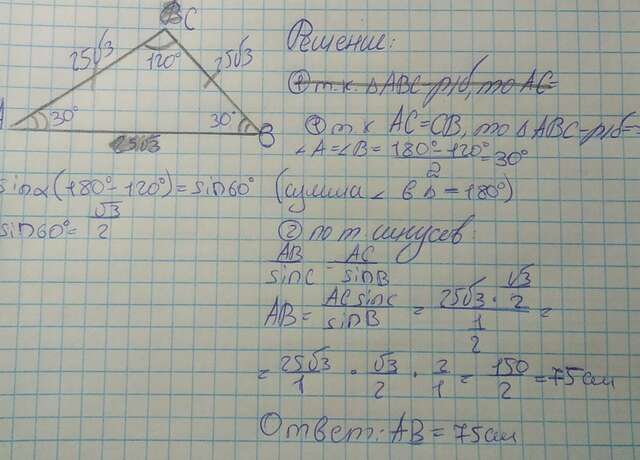 C
25√3
25√3
120°
A
30°
30°
B
25√3
sinα(180°-120°)=sin60°
sin60°= √3/2
Решение:
① т.к. ΔABC-р/б, то AC=
① т.к AC=CB, то ΔABC=р/б=
∠A=∠B= (180°-120°)/2 =30°
(сумма ∠ в Δ=180°)
② по т. синусов:
AB/sinC = AC/sinB
AB= ACsinC/sinB = (25√3 · √3/2)/(1/2) =
= 25√3/1 · √3/2 · 2/1 = 150/2 =75см
Ответ: AB=75см